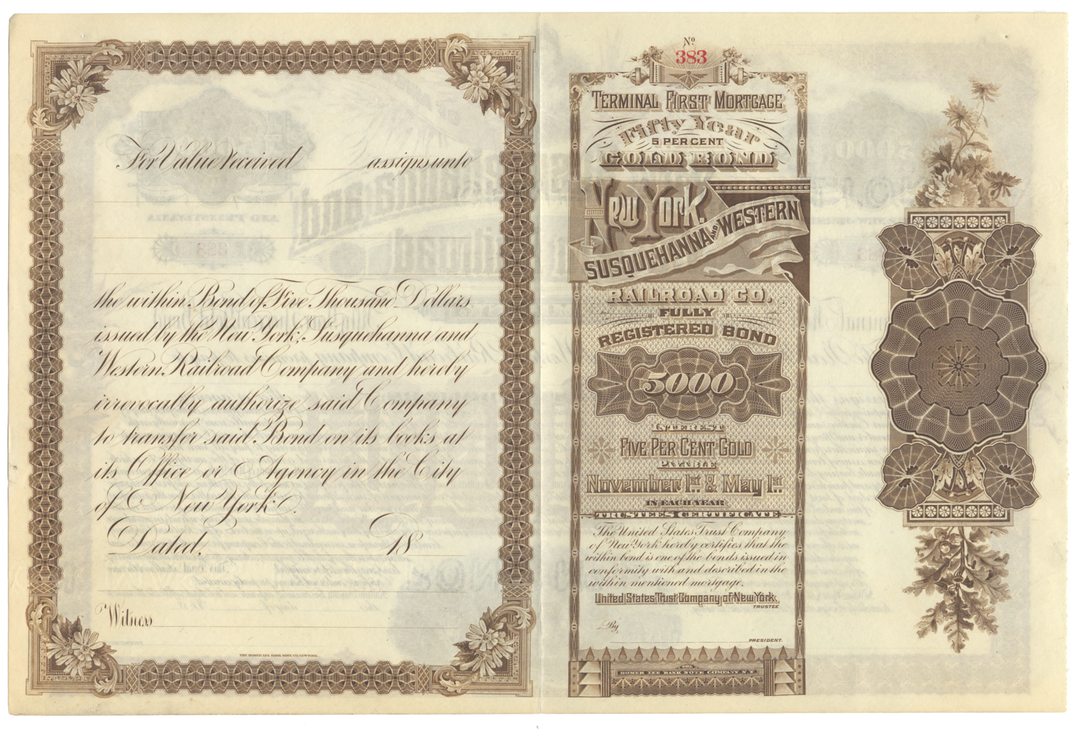 For Value received assigns unto
the within Bond of Five Thousand Dollars
issued by the New York, Susquehanna and
Western Railroad Company and hereby
irrevocally authorize said Company
to transfer said Bond on its books at
its Office or Agency in the City
of New York.
Dated, 18
Witness
THE HOMER LEE BANK NOTE CO. NEW YORK.
No
383
TERMINAL FIRST MORTGAGE
Fifty Year
5 PER CENT
GOLD BOND
New York,
SUSQUEHANNA AND WESTERN
RAILROAD CO.
FULLY
REGISTERED BOND
5000
INTEREST
FIVE PER CENT GOLD
PAYABLE
November 1st & May 1st
IN EACH YEAR
TRUSTEES CERTIFICATE
The United States Trust Company
of New York hereby certifies that the
within bond is one of the bonds issued in
conformity with and described in the
within mentioned mortgage.
United States Trust Company of New York,
TRUSTEE
By
PRESIDENT.
HOMER LEE BANK NOTE COMPANY N.Y.